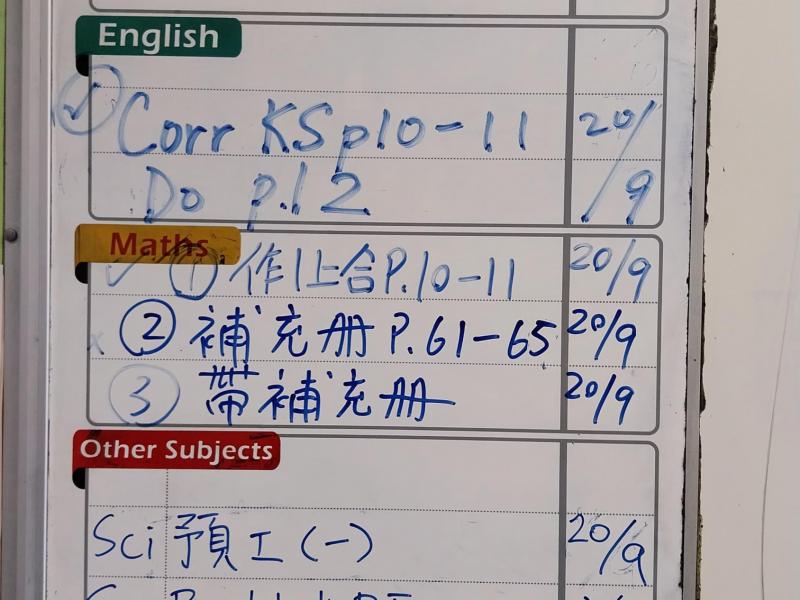 English
✓ Corr KS p10-11 20/9
Do p.12
Maths
✓ ① 作1上合P.10-11 20/9
② 補充册 P.61-65 20/9
③ 帶補充册 20/9
Other Subjects
Sci 預工(一) 20/9